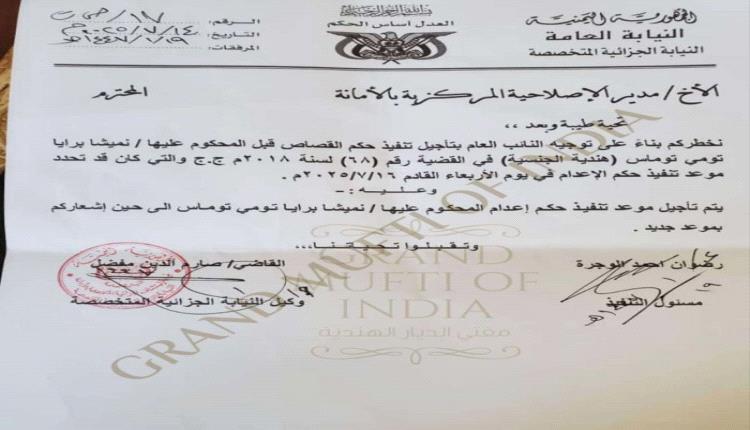 الجمهورية اليمنية
النيابة العامة
النيابة الجزائية المتخصصة
العدل اساس الحكم
الرقم: ١٧/
التاريخ: ٢٠٢٥/٧/١٤م
١٤٤٧/١/١٩هـ
المرفقات:
الأخ/ مدير الإصلاحية المركزية بالأمانة المحترم
تحية طيبة وبعد ،،
نخطركم بناءً على توجيه النائب العام بتأجيل تنفيذ حكم القصاص قبل المحكوم عليها/ نميشا برايا
تومي توماس (هندية الجنسية) في القضية رقم (٦٨) لسنة ٢٠١٨م ج.ج والتي كان قد تحدد
موعد تنفيذ حكم الإعدام في يوم الأربعاء القادم ٢٠٢٥/٧/١٦م .
وعليه :-
يتم تأجيل موعد تنفيذ حكم إعدام المحكوم عليها/ نميشا برايا تومي توماس الى حين إشعاركم
بموعد جديد .
وتقبلوا تحيتنا،،،
رضوان احمد الوجرة
مسئول التنفيذ
القاضي/ صارم الدين مفضل
وكيل النيابة الجزائية المتخصصة
GRAND MUFTI OF INDIA
GRAND
MUFTI OF
INDIA
مفتي الديار الهندية